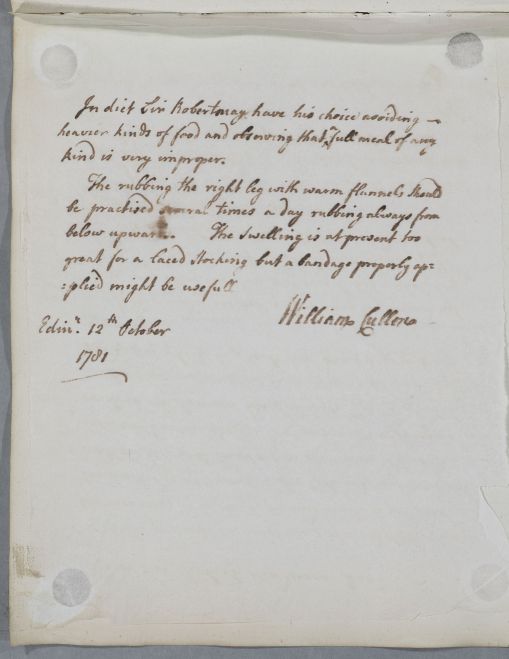 In diet Sir Robert may have his choice avoiding
heavier kinds of food and observing that a full meal of any
kind is very improper.
The rubbing the right leg with warm flannels should
be practised several times a day rubbing always from
below upwards. The swelling is at present too
great for a laced stocking but a bandage properly ap=
:plied might be usefull
William Cullen
Edinr. 12th October
1781